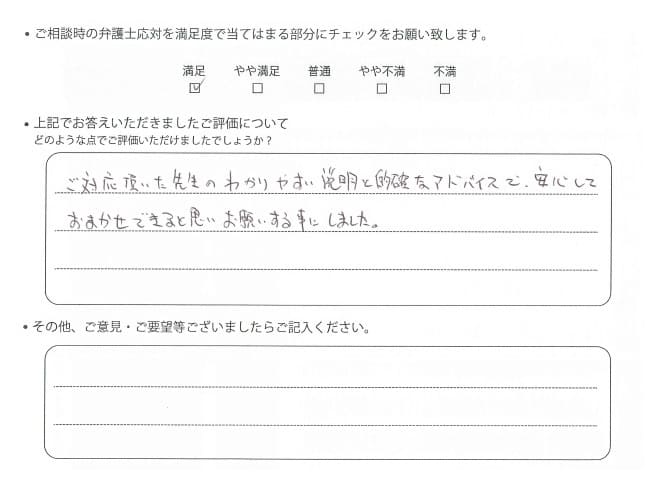 • ご相談時の弁護士応対を満足度で当てはまる部分にチェックをお願い致します。
満足 やや満足 普通 やや不満 不満
☑ ☐ ☐ ☐ ☐
• 上記でお答えいただきましたご評価について
どのような点でご評価いただけましたでしょうか？
ご対応頂いた先生のわかりやすい説明と的確なアドバイスで、安心して
おまかせできると思いお願いする事にしました。
• その他、ご意見・ご要望等ございましたらご記入ください。